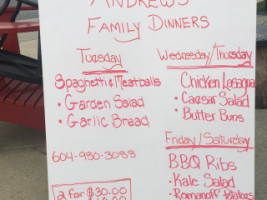 ANDREWS
FAMILY DINNERS
Tuesday
Spaghetti & Meatballs
• Garden Salad
• Garlic Bread
604-980-3088
2 for $30.00
Wednesday/Thursday
Chicken Lasagna
• Caesar Salad
• Butter Buns
Friday/Saturday
BBQ Ribs
• Kale Salad
• Romanoff Potatoes